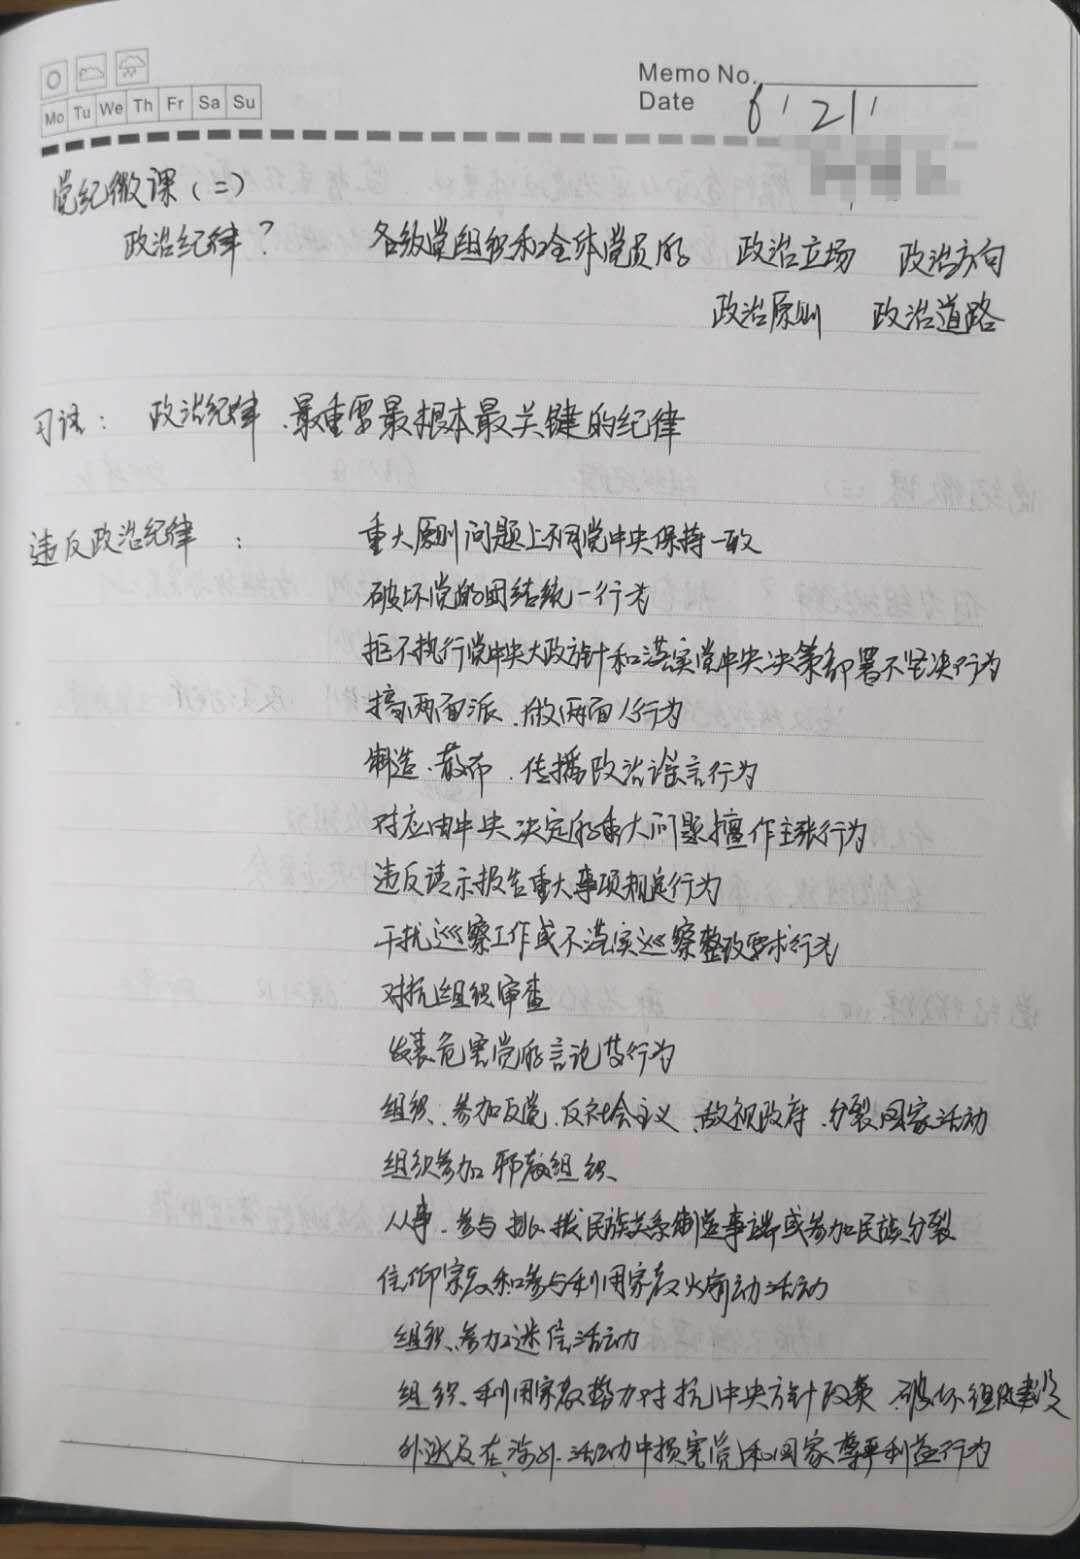 Mo Tu We Th Fr Sa Su
Memo No.
Date 6 ' 21 '
党纪微课(二)
政治纪律? 各级党组织和全体党员的 政治立场 政治方向
政治原则 政治道路
习语: 政治纪律、最重要最根本最关键的纪律
违反政治纪律: 重大原则问题上不同党中央保持一致
破坏党的团结统一行为
拒不执行党中央大政方针和落实党中央决策部署不坚决行为
搞两面派、做两面人行为
制造、散布、传播政治谣言行为
对应由中央决定的重大问题擅作主张行为
违反请示报告重大事项规定行为
干扰巡察工作或不落实巡察整改要求行为
对抗组织审查
发表危害党的言论及行为
组织、参加反党、反社会主义、敌视政府、分裂国家活动
组织参加邪教组织、
从事、参与挑拨民族关系制造事端或参加民族分裂
信仰宗教和参与利用宗教煽动活动
组织、参加迷信活动
组织、利用宗教势力对抗中央方针政策、破坏组织建设
外逃及在涉外活动中损害党和国家尊严利益行为